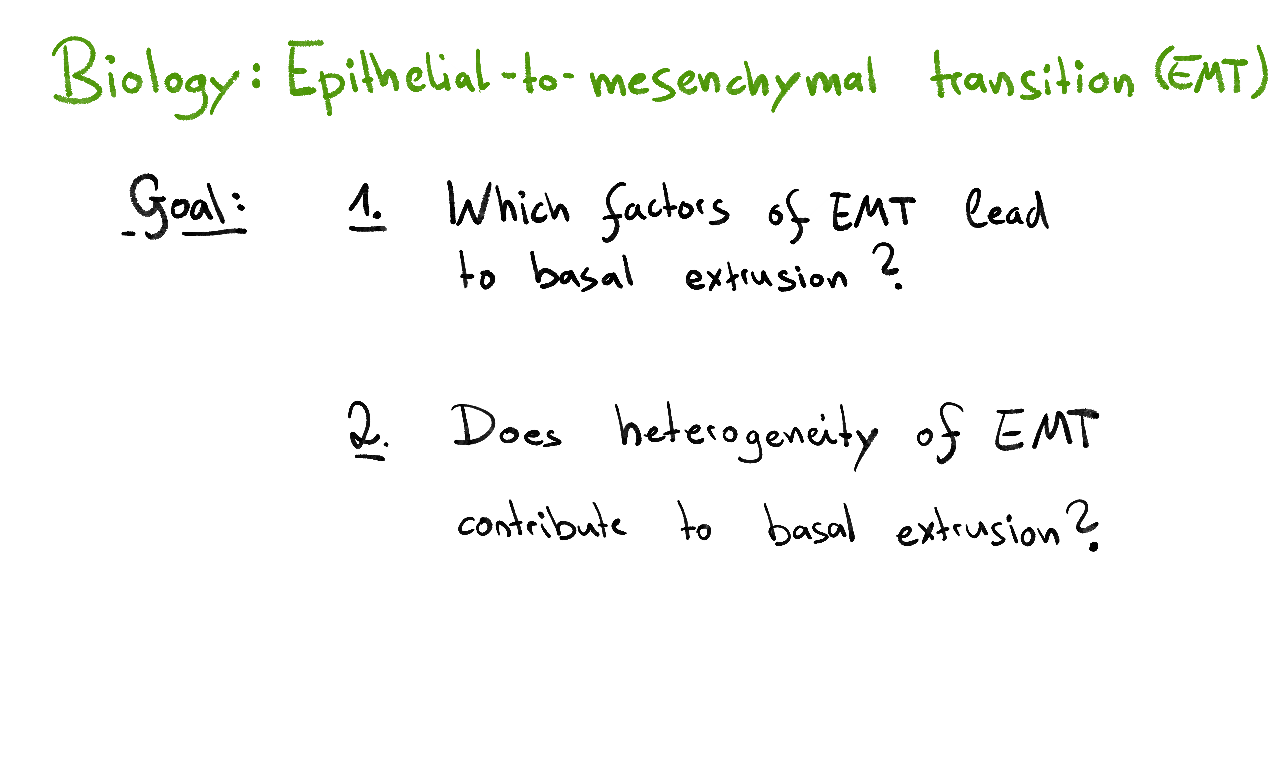 Biology: Epithelial-to-mesenchymal transition (EMT)
Goal: 1. Which factors of EMT lead
to basal extrusion?
2. Does heterogeneity of EMT
contribute to basal extrusion?